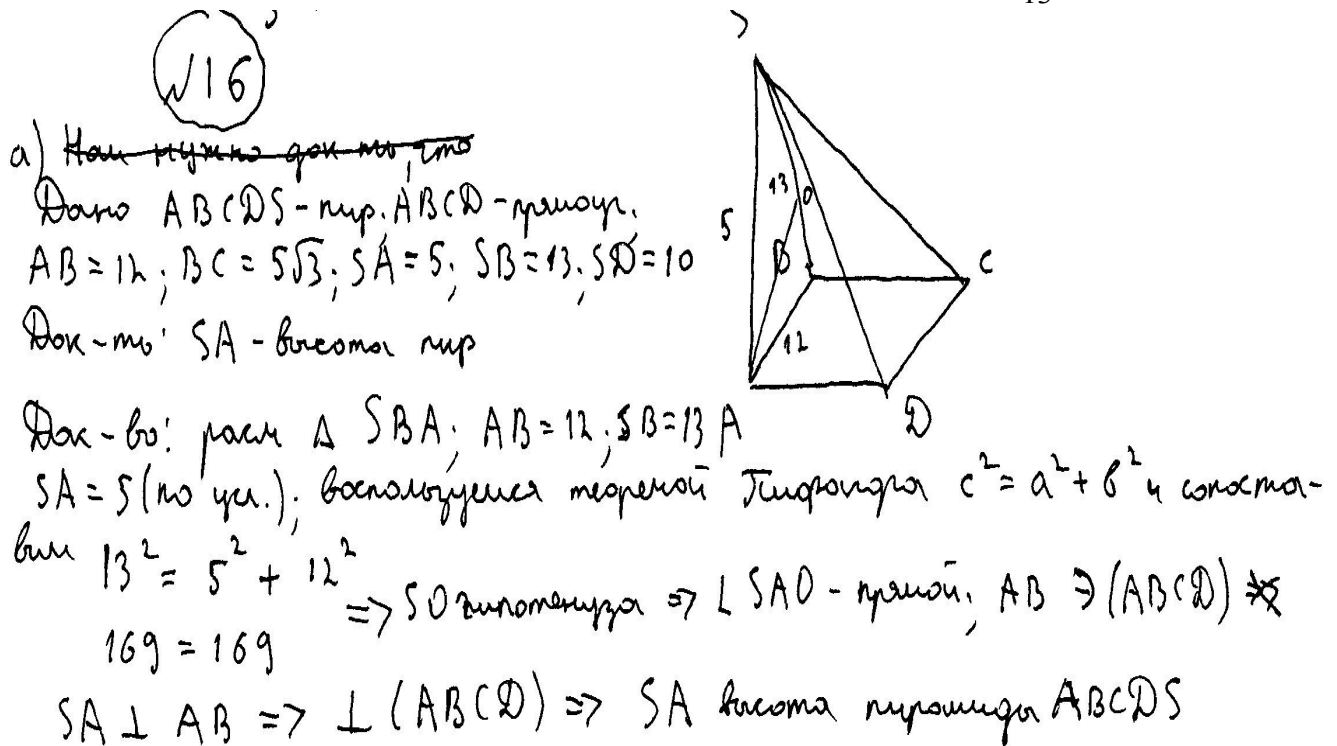 13
№16
а) Нам нужно док-ть, что
Дано ABCDS-пир., ABCD-прямоуг.
AB=12; BC=5√3; SA=5; SB=13; SD=10
Док-ть: SA-высота пир
Док-во: расм Δ SBA; AB=12; SB=13
SA=5 (по усл.); воспользуемся теоремой Пифагора c²=a²+b² и сопоста-
вим 13² = 5² + 12²
169 = 169
=> SO гипотенуза => ∠ SAO - прямой; AB ∋ (ABCD)
SA ⊥ AB => ⊥ (ABCD) => SA высота пирамиды ABCDS
5
13
O
B
C
12
A
D